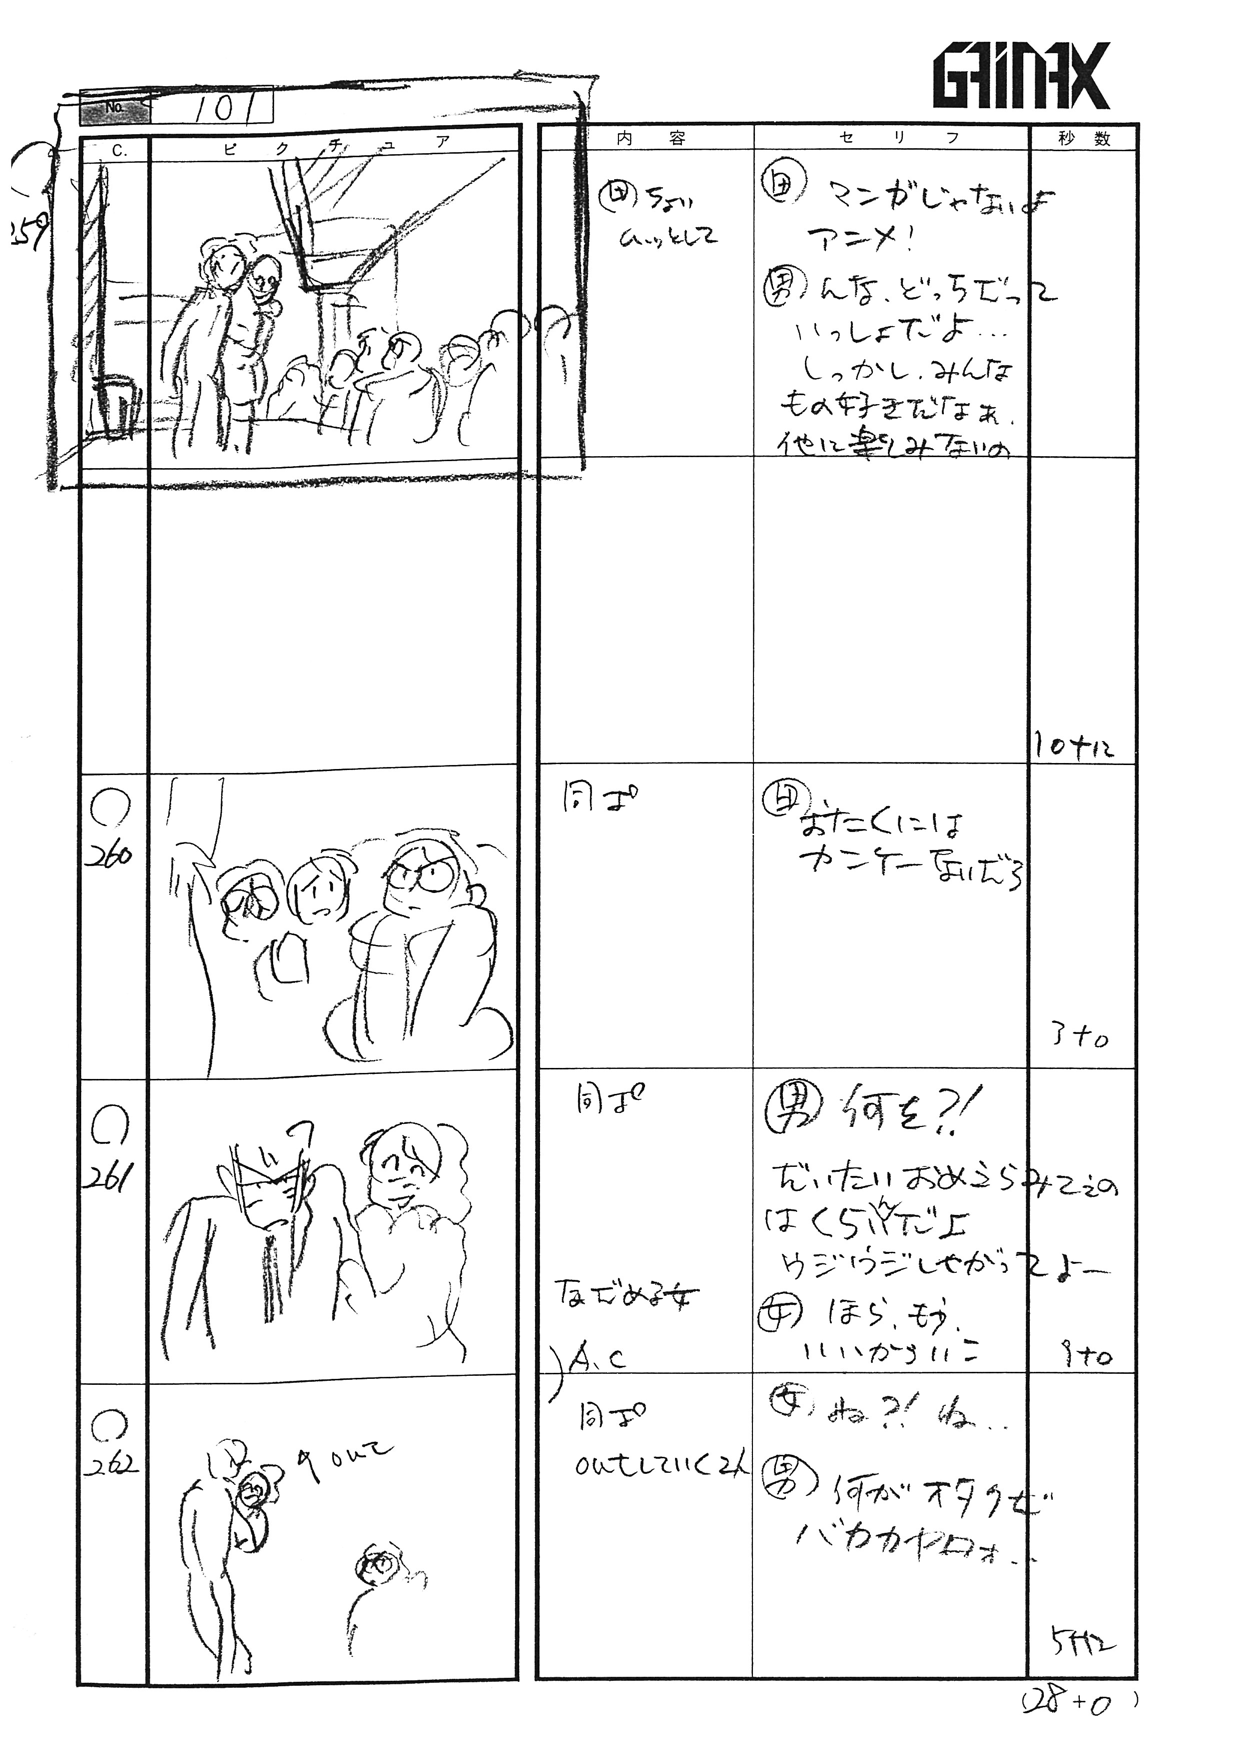 GAINAX
No. 101
C. ピクチュア 内容 セリフ 秒数
259
田 ちょい
ムッとして
田 マンガじゃないよ
アニメ!
男 んな、どっちだって
いっしょだよ…
しっかし、みんな
もの好きだなぁ、
他に楽しみないの
10+12
260
同ポ
田 おたくには
カンケーないだろ
3+0
261
同ポ
なだめる女
A.C
男 何を?!
だいたいおめえらみてえの
はくらいんだよ
ウジウジしやがってよー
女 ほら、もう、
いいからいこ
9+0
262
out
同ポ
outしていく2人
女 ねェ?! ね…
男 何がオタクだ
バカカヤロォ…
5+12
(28+0)